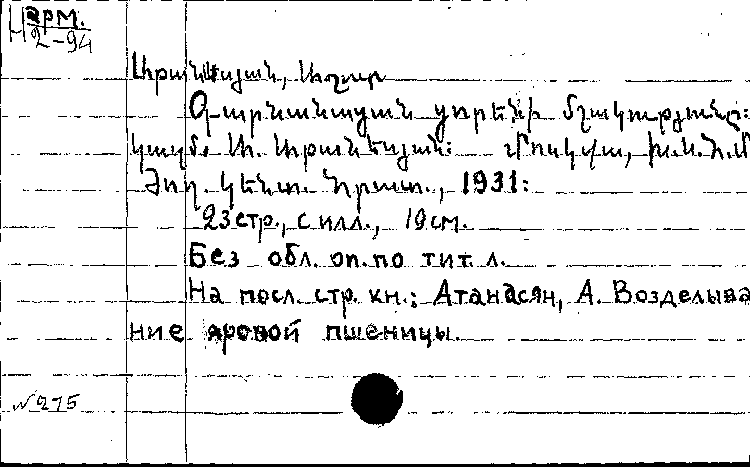 Н арм.
2-94
Աթանասյան, Աշոտ
Գարնանացան ցորենի մշակությունը:
կազմ. Ա. Աթանասյան: Մոսկվա, Խ.Ս.Հ.Մ
Ժող. Կենտ. Հրատ., 1931:
23 стр., с илл., 19 см.
Без обл. оп. по тит. л.
На посл. стр. кн.: Атанасян, А. Возделыва
ние яровой пшеницы.
№ 275